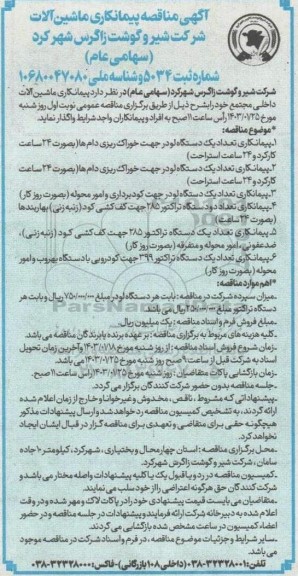 آگهی مناقصه پیمانکاری ماشین آلات
شرکت شیر و گوشت زاگرس شهر کرد
(سهامی عام)
شماره ثبت ۵۰۳۴ و شناسه ملی ۱۰۶۸۰۰۴۷۰۸۰
شرکت شیر و گوشت زاگرس شهرکرد (سهامی عام) در نظر دارد پیمانکاری ماشین آلات
داخلی مجتمع خود را بشرح ذیل از طریق برگزاری مناقصه عمومی نوبت اول روز شنبه
مورخ ۱۴۰۳/۰۷/۲۵ رأس ساعت ۱۱ صبح به افراد و پیمانکاران واجد شرایط واگذار نماید.
*موضوع مناقصه:
۱. پیمانکاری تعداد یک دستگاه لودر جهت خوراک ریزی دام ها (بصورت ۲۴ ساعت
کارکرد و ۲۴ ساعت استراحت)
۲. پیمانکاری تعداد یک دستگاه لودر جهت خوراک ریزی دام ها (بصورت ۲۴ ساعت
کارکرد و ۲۴ ساعت استراحت)
۳. پیمانکاری تعداد یک دستگاه لودر جهت کودبرداری و امور محوله (بصورت روز کار)
۴. پیمانکاری تعداد دو دستگاه تراکتور ۲۸۵ جهت کف کشی کود (زتبه زنی) بهاربندها
(بصورت ۲۴ ساعت)
۵. پیمانکاری تعداد یک دستگاه تراکتور ۲۸۵ جهت کف کشی کود (زتبه زنی)،
ضدعفونی، امور محوله و متفرقه (بصورت روز کار)
۶. پیمانکاری تعداد یک دستگاه تراکتور ۳۹۹ جهت کودروبی با دستگاه بهروب و امور
محوله (بصورت روز کار)
*اهم موارد مناقصه:
.میزان سپرده شرکت در مناقصه: بابت هر دستگاه لودر مبلغ ۷۵۰/۰۰۰/۰۰۰ ریال و بابت هر
دستگاه تراکتور مبلغ ۲۵۰/۰۰۰/۰۰۰ ریال می باشد.
.مبلغ فروش فرم و اسناد مناقصه: یک میلیون ریال.
.کلیه هزینه های مربوط به برگزاری مناقصه: بر عهده برنده یا برندگان مناقصه می باشد.
.زمان شروع فروش اسناد مناقصه: از روز شنبه مورخ ۱۴۰۳/۰۷/۱۸ و آخرین زمان تحویل
اسناد به شرکت قبل از ساعت ۹ صبح روز شنبه مورخ ۱۴۰۳/۰۷/۲۵ می باشد.
.زمان بازگشایی پاکات متقاضیان: روز شنبه مورخ ۱۴۰۳/۰۷/۲۵ رأس ساعت ۱۱ صبح.
.جلسه مناقصه بدون حضور شرکت کنندگان برگزار می گردد.
.پیشنهاداتی که مشروط، ناقص، مخدوش و غیرخوانا و خارج از زمان اعلام شده
ارائه گردند، به تشخیص کمیسیون مناقصه رد خواهد شد و ارسال پیشنهادات مذکور
هیچگونه حقی برای متقاضی و تعهدی برای مناقصه گزار در قبال ایشان ایجاد
نخواهد کرد.
.محل برگزاری مناقصه: استان چهارمحال و بختیاری، شهرکرد، کیلومتر ۱۰ جاده
سامان، شرکت شیر و گوشت زاگرس شهرکرد.
.کمیسیون مناقصه در رد و یا قبول یک یا کلیه پیشنهادات واصله مختار می باشد و
شرکت کنندگان حق هرگونه اعتراضی را از خود سلب می نمایند.
.متقاضیان می بایست قیمت پیشنهادی خود را در پاکت لاک و مهر شده و در وقت
اعلام شده به دبیرخانه شرکت ارائه فرمایند و پیشنهادات در جلسه مناقصه و در حضور
اعضاء کمیسیون در ساعت مشخص شده بازگشایی می گردند.
.سایر شرایط و جزئیات موضوع مناقصه، در فرم و اسناد شرکت در مناقصه موجود
می باشد.
تلفن: ۳۲۳۲۸۰۰۱-۰۳۸ (داخلی ۱۰۸ بازرگانی)-فاکس: ۳۲۳۲۸۰۰۰-۰۳۸